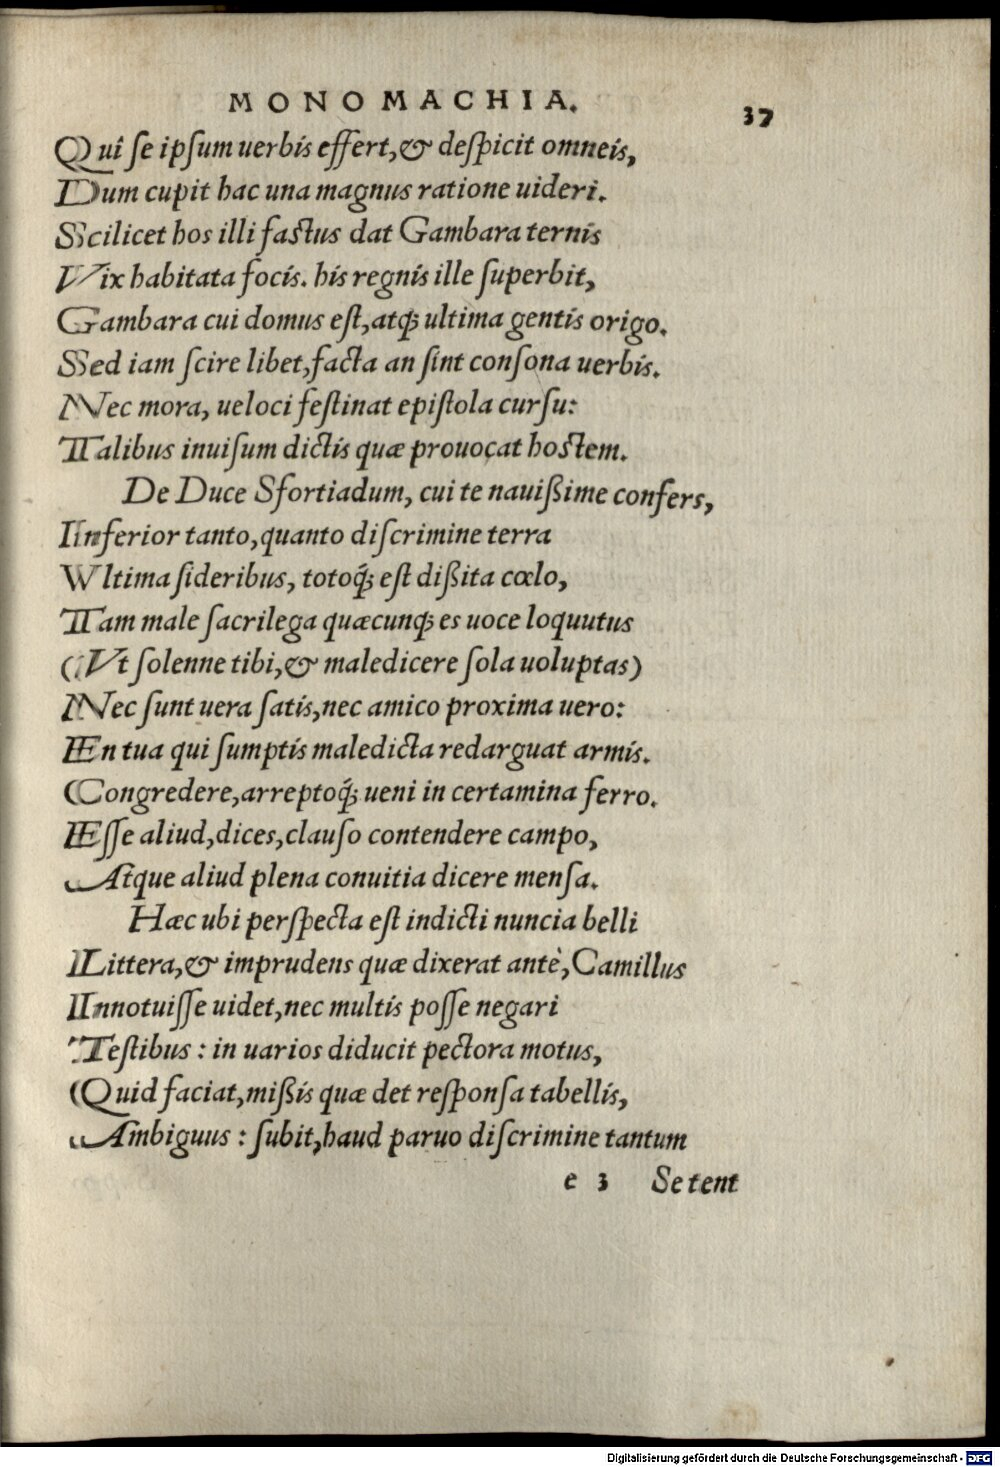 MONOMACHIA. 37
Qui se ipsum uerbis effert,& despicit omneis,
Dum cupit hac una magnus ratione uideri.
Scilicet hos illi fastus dat Gambara ternis
Vix habitata focis. his regnis ille superbit,
Gambara cui domus est,atq; ultima gentis origo.
Sed iam scire libet,facta an sint consona uerbis.
Nec mora, ueloci festinat epistola cursu:
Talibus inuisum dictis quæ prouocat hostem.
De Duce Sfortiadum, cui te nauißime confers,
Inferior tanto,quanto discrimine terra
Vltima sideribus, totoq́; est dißita cœlo,
Tam male sacrilega quæcunq; es uoce loquutus
(Vt solenne tibi,& maledicere sola uoluptas)
Nec sunt uera satis,nec amico proxima uero:
En tua qui sumptis maledicta redarguat armis.
Congredere,arreptoq́; ueni in certamina ferro.
Esse aliud,dices,clauso contendere campo,
Atque aliud plena conuitia dicere mensa.
Hæc ubi perspecta est indicti nuncia belli
Littera,& imprudens quæ dixerat antè,Camillus
Innotuisse uidet,nec multis posse negari
Testibus : in uarios diducit pectora motus,
Quid faciat,mißis quæ det responsa tabellis,
Ambiguus : subit,haud paruo discrimine tantum
e 3 Se tent
Digitalisierung gefördert durch die Deutsche Forschungsgemeinschaft - DFG